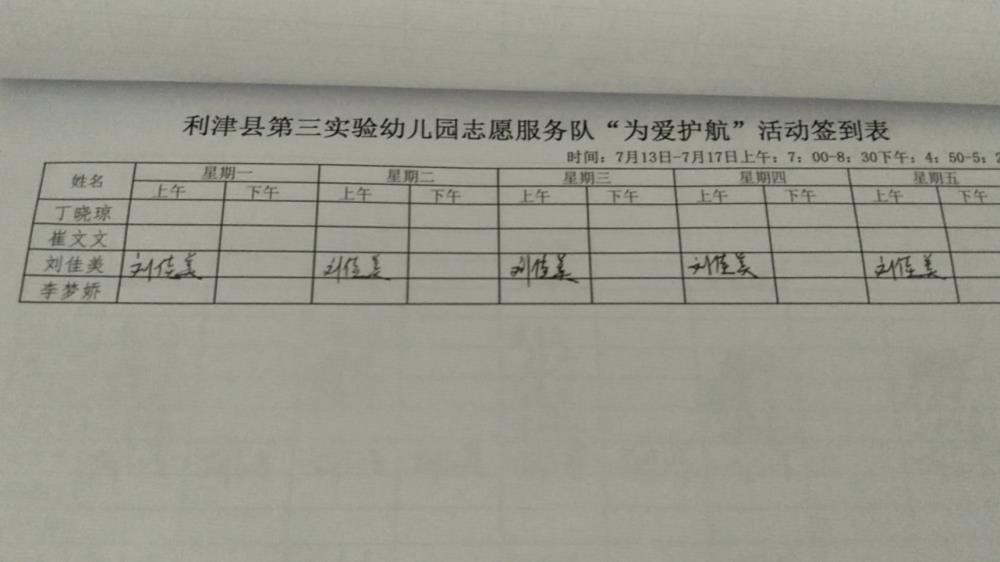 利津县第三实验幼儿园志愿服务队“为爱护航”活动签到表
时间：7月13日-7月17日上午：7：00-8：30下午：4：50-5：2
姓名 星期一 星期二 星期三 星期四 星期五
上午 下午 上午 下午 上午 下午 上午 下午 上午 下午
丁晓琼
崔文文
刘佳美 刘佳美 刘佳美 刘佳美 刘佳美 刘佳美
李梦娇